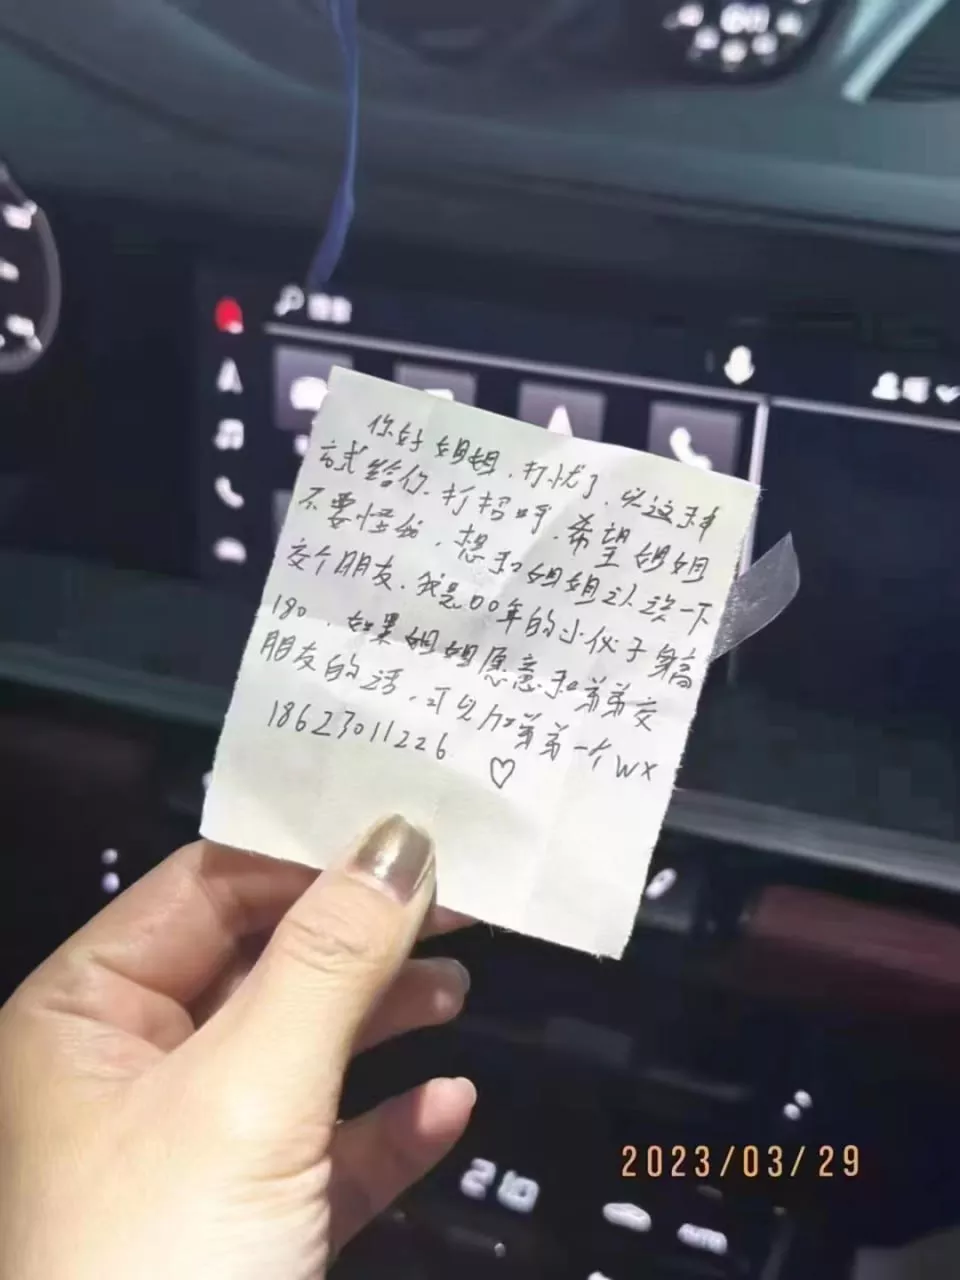 你好姐姐，打扰了，以这种
方式给你打招呼，希望姐姐
不要怪我，想和姐姐认识一下
交个朋友，我是00年的小伙子身高
180，如果姐姐愿意和弟弟交
朋友的话，可以加弟弟一个WX
18623011226 ♡
21.0
AUTO
2023/03/29